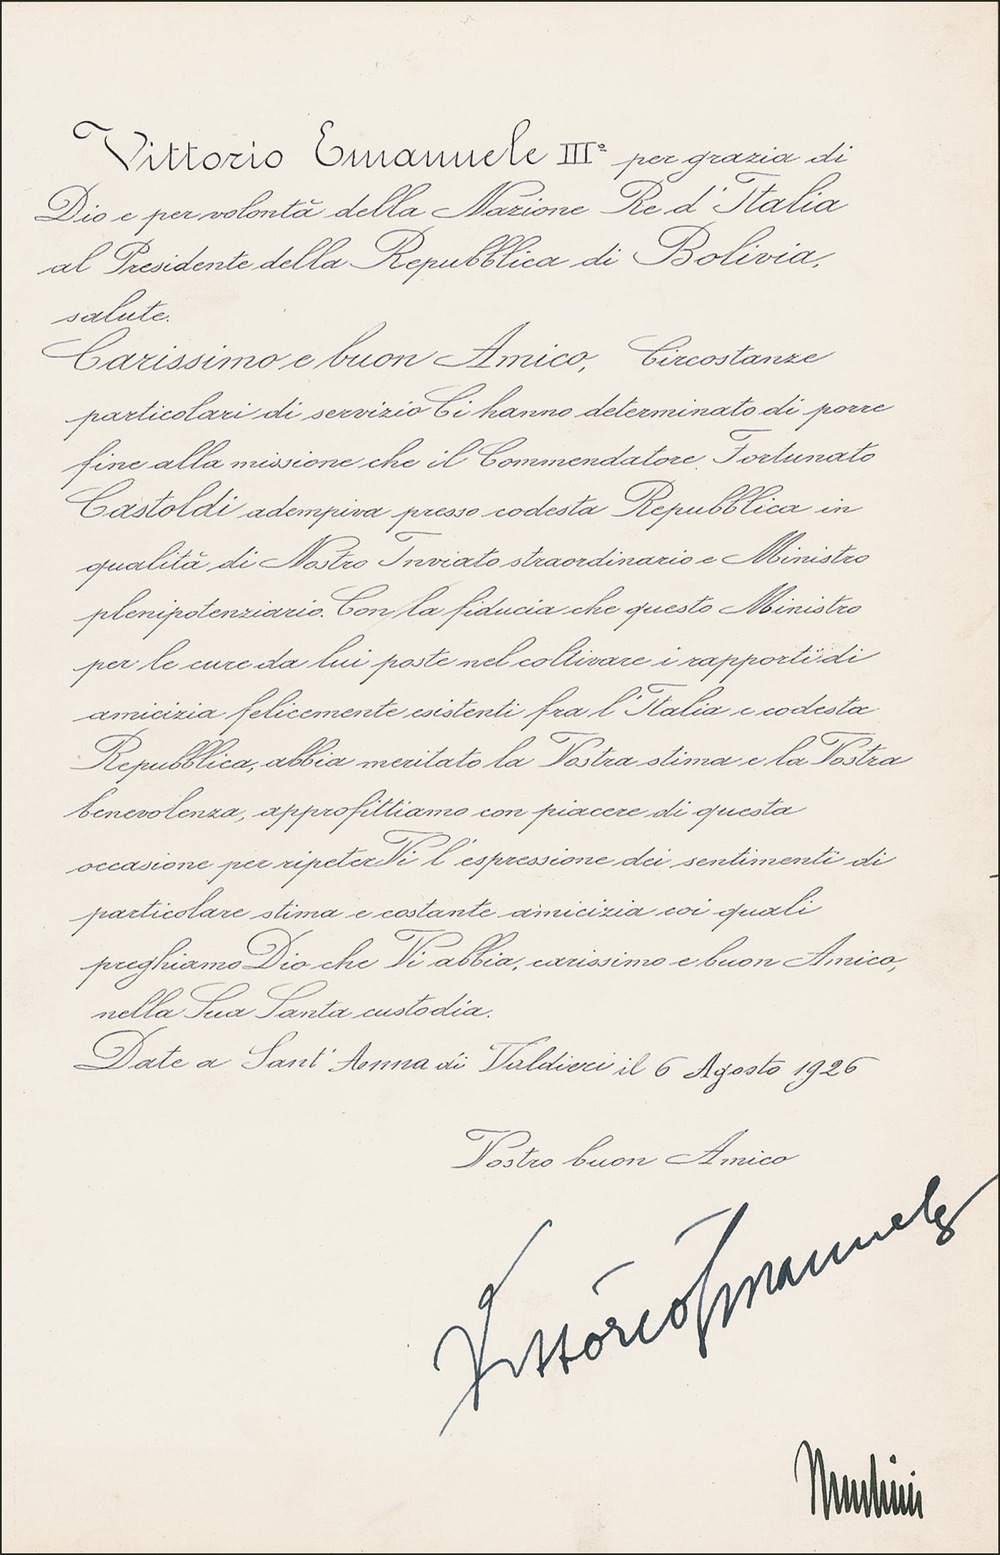 Vittorio Emanuele III° per grazia di
Dio e per volontà della Nazione Re d'Italia
al Presidente della Repubblica di Bolivia,
salute.
Carissimo e buon Amico, Circostanze
particolari di servizio Ci hanno determinato di porre
fine alla missione che il Commendatore Fortunato
Castoldi adempiva presso codesta Repubblica in
qualità di Nostro Inviato straordinario e Ministro
plenipotenziario. Con la fiducia che questo Ministro
per le cure da lui poste nel coltivare i rapporti di
amicizia felicemente esistenti fra l'Italia e codesta
Repubblica, abbia meritato la Vostra stima e la Vostra
benevolenza, approfittiamo con piacere di questa
occasione per ripeterVi l'espressione dei sentimenti di
particolare stima e costante amicizia coi quali
preghiamo Dio che Vi abbia, carissimo e buon Amico,
nella Sua Santa custodia.
Date a Sant'Anna di Valdieri il 6 Agosto 1926
Vostro buon Amico
Vittorio Emanuele
Mussolini